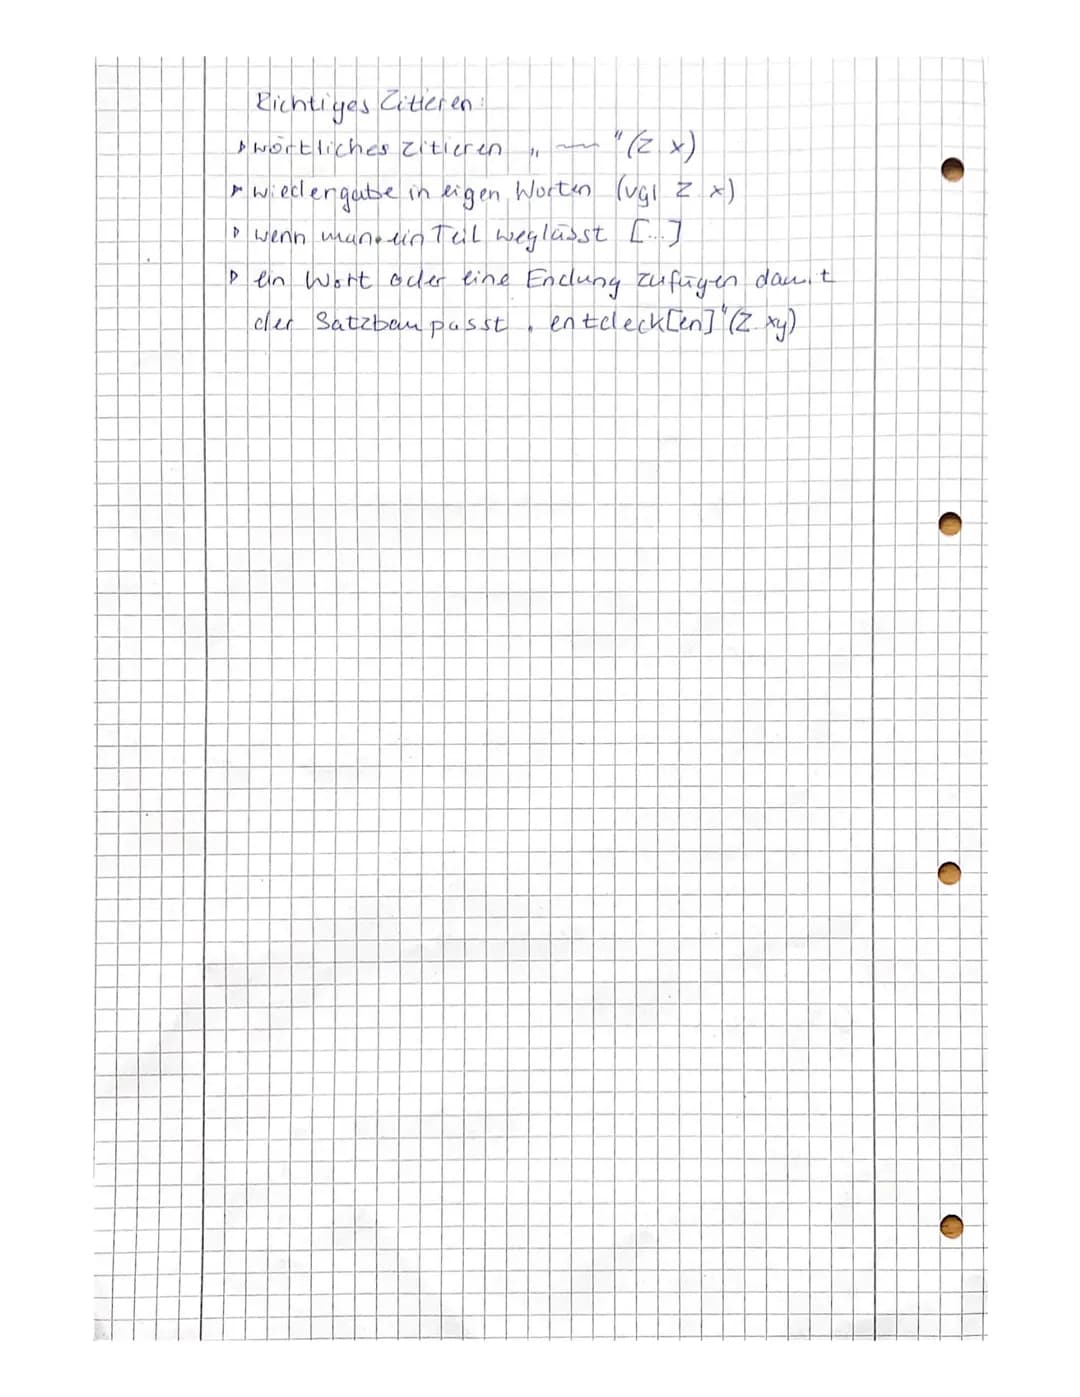 Richtiges Zitieren:
▹ wörtliches zitieren „ ~~ " (Z. x)
▹ wiedergabe in eigen Worten (vgl Z. x)
▹ wenn man ein Teil weglässt [...]
▹ ein Wort oder eine Endung zufügen damit
der Satzbau passt „entdeck[en]" (Z. xy)